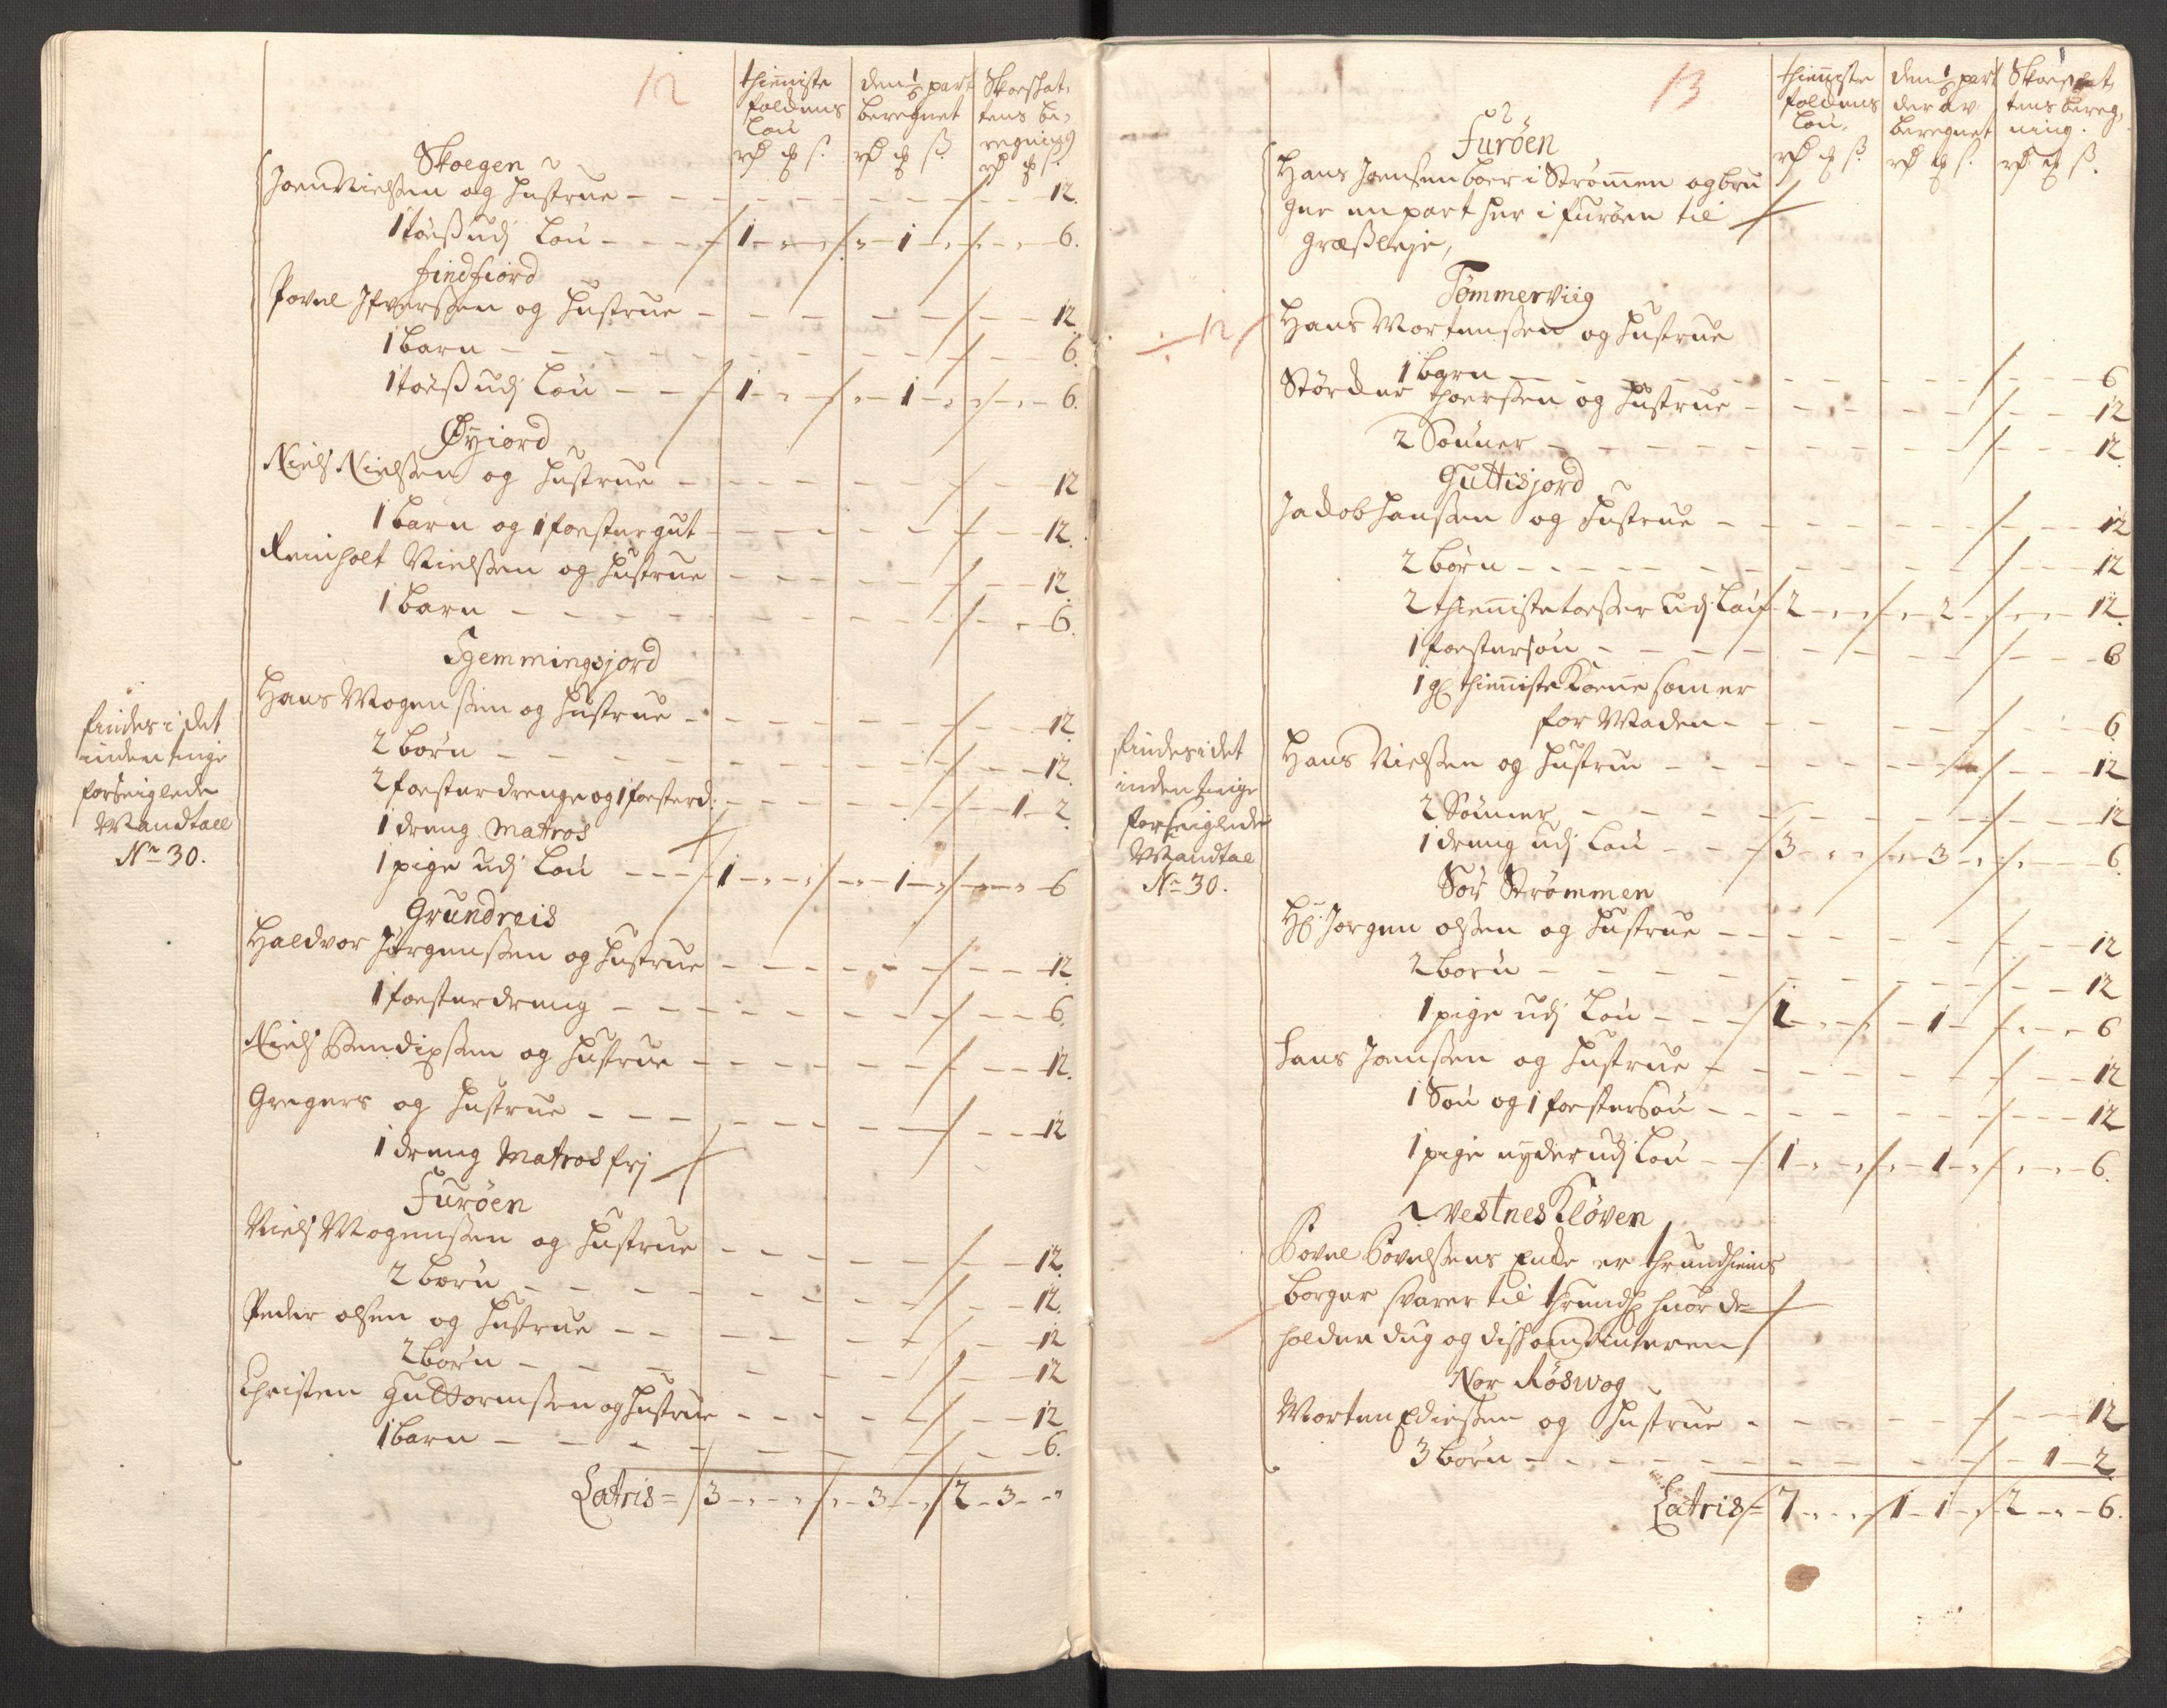 12
thieniste folckens Løn
rd ort ß.
den 1/6 part beregnet
rd ort ß
Skoeskattens beregning
rd ort ß.
Skoegen
Joen Nielssen og Hustrue - - - 12.
1 tøeß udj Løn - - - 1 - „ - „ „ - 1 - „ „ - „ - 6.
Findfiord
Povel Ifverssen og Hustrue - - - 12
1 barn - - - 6.
1 tøeß udj Løn - - - 1 - „ - „ „ - 1 - „ „ - „ - 6.
Øyjord
Niels Nielssen og Hustrue - - - 12
1 barn og 1 fostergut - - - 12.
Reinholt Nielssen og Hustrue - - - 12
1 barn - - - 6.
Gjemmingsjord
Hans Mogenssen og Hustrue - - - 12
2 børn - - - 12.
2 fosterdrenge og 1 fosterd: - - - 1 - 2
1 dreng Matros
1 pige udj Løn - - - 1 - „ - „ „ - 1 - „ „ - „ - 6
Grundreis
Haldvor Jørgenssen og Hustrue - - - 12.
1 fosterdreng - - - 6.
Niels Bendixsen og Hustrue - - - 12.
Gregers og Hustrue - - - 12
1 dreng Matros frj
Furøen
Niels Mogenssen og Hustrue - - - 12.
2 børn - - - 12.
Peder olsen og Hustrue - - - 12
2 børn - - - 12
Christen Guttormssen og Hustrue - - - 12
1 barn - - - 6.
Latris = 3 - „ - „ „ - 3 - „ 2 - 3 - „
findes i det
inden tinge
forseiglede
Mandtall
No 30.
13
thieniste folckens Løn.
rd ort ß
den 1/6 part derav beregnet
rd ort ß.
Skoeskattens beregning.
rd ort ß.
Furøen
Hans Joensen boer i Strømen og bru
ger en part her i furøen til
græßleje,
Tømmerviig
12
Hans Mortenssen og Hustrue
1 barn - - - 6
Størcker thoerssen og Hustrue - - - 12
2 Sønner - - - 12.
Guttisjord
Jacob Hanssen og Hustrue - - - 12
2 børn - - - 12
2 thieniste tøeßer udj Løn 2 - „ - „ „ - 2 - „ „ - „ - 12.
1 fostersøn - - - 6
1 gl thieniste Kone som er
for Maden - - - 6.
Hans Nielssen og Hustrue - - - 12
2 Sønner - - - 12
1 dreng udj Løn - - - 3 - „ - „ „ - 3 - „ „ - - 6.
Sør Strømmen
Hr Jørgen olssen og Hustrue - - - 12
2 børn - - - 12
1 pige udj Løn - - - 1 - „ - „ - 1 - „ - „ - 6
Hans Joenssen og Hustrue - - - 12
1 Søn og 1 fostersøn - - - 12
1 pige nyder udj Løn - - 1 - „ - „ „ - 1 - „ „ - „ - 6.
Vestnes Kløven
Povel Povelssens Encke er thrundhiems
borger svarer til thrundh: huor de
holder dug og disk om Vinteren
Nor Røswog
Morten Ediessen og Hustrue - - - 12
3 børn - - - 1 - 2
Latris = 7 - „ - „ 1 - 1 - „ 2 - „ - 6.
findes i det
inden tinge
forseiglede
Mandtal
No 30.